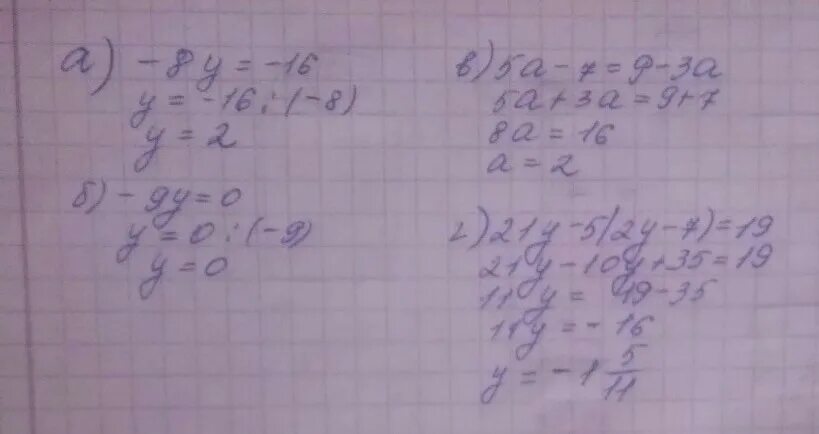 а) -8y = -16
y = -16 : (-8)
y = 2
б) -9y = 0
y = 0 : (-9)
y = 0
в) 5a - 7 = 9 - 3a
5a + 3a = 9 + 7
8a = 16
a = 2
г) 21y - 5(2y - 7) = 19
21y - 10y + 35 = 19
11y = 19 - 35
11y = - 16
y = -1 5/11